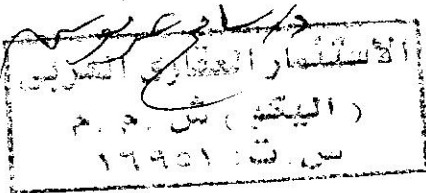 الاستثمار العقارى العربى
(اليكو) ش.م.م
س.ت: ١٦٩٥١